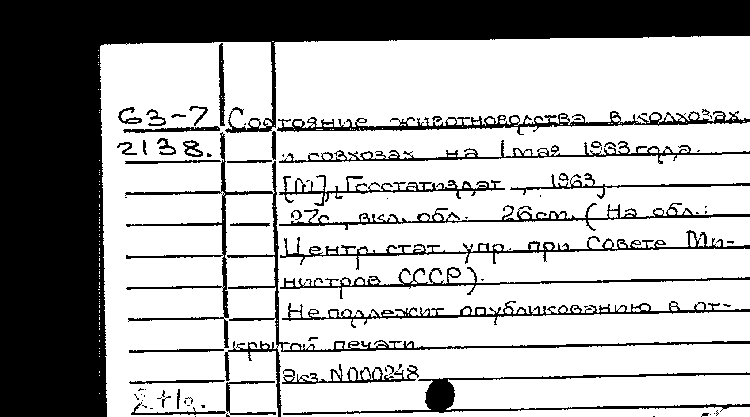 63-7 Состояние животноводства в колхозах
2138. и совхозах на 1 мая 1963 года.
[М], Госстатиздат, 1963,
27с., вкл. обл. 26см. (На обл.:
Центр. стат. упр. при Совете Ми-
нистров СССР).
Не подлежит опубликованию в от-
крытой печати.
Экз. N000248